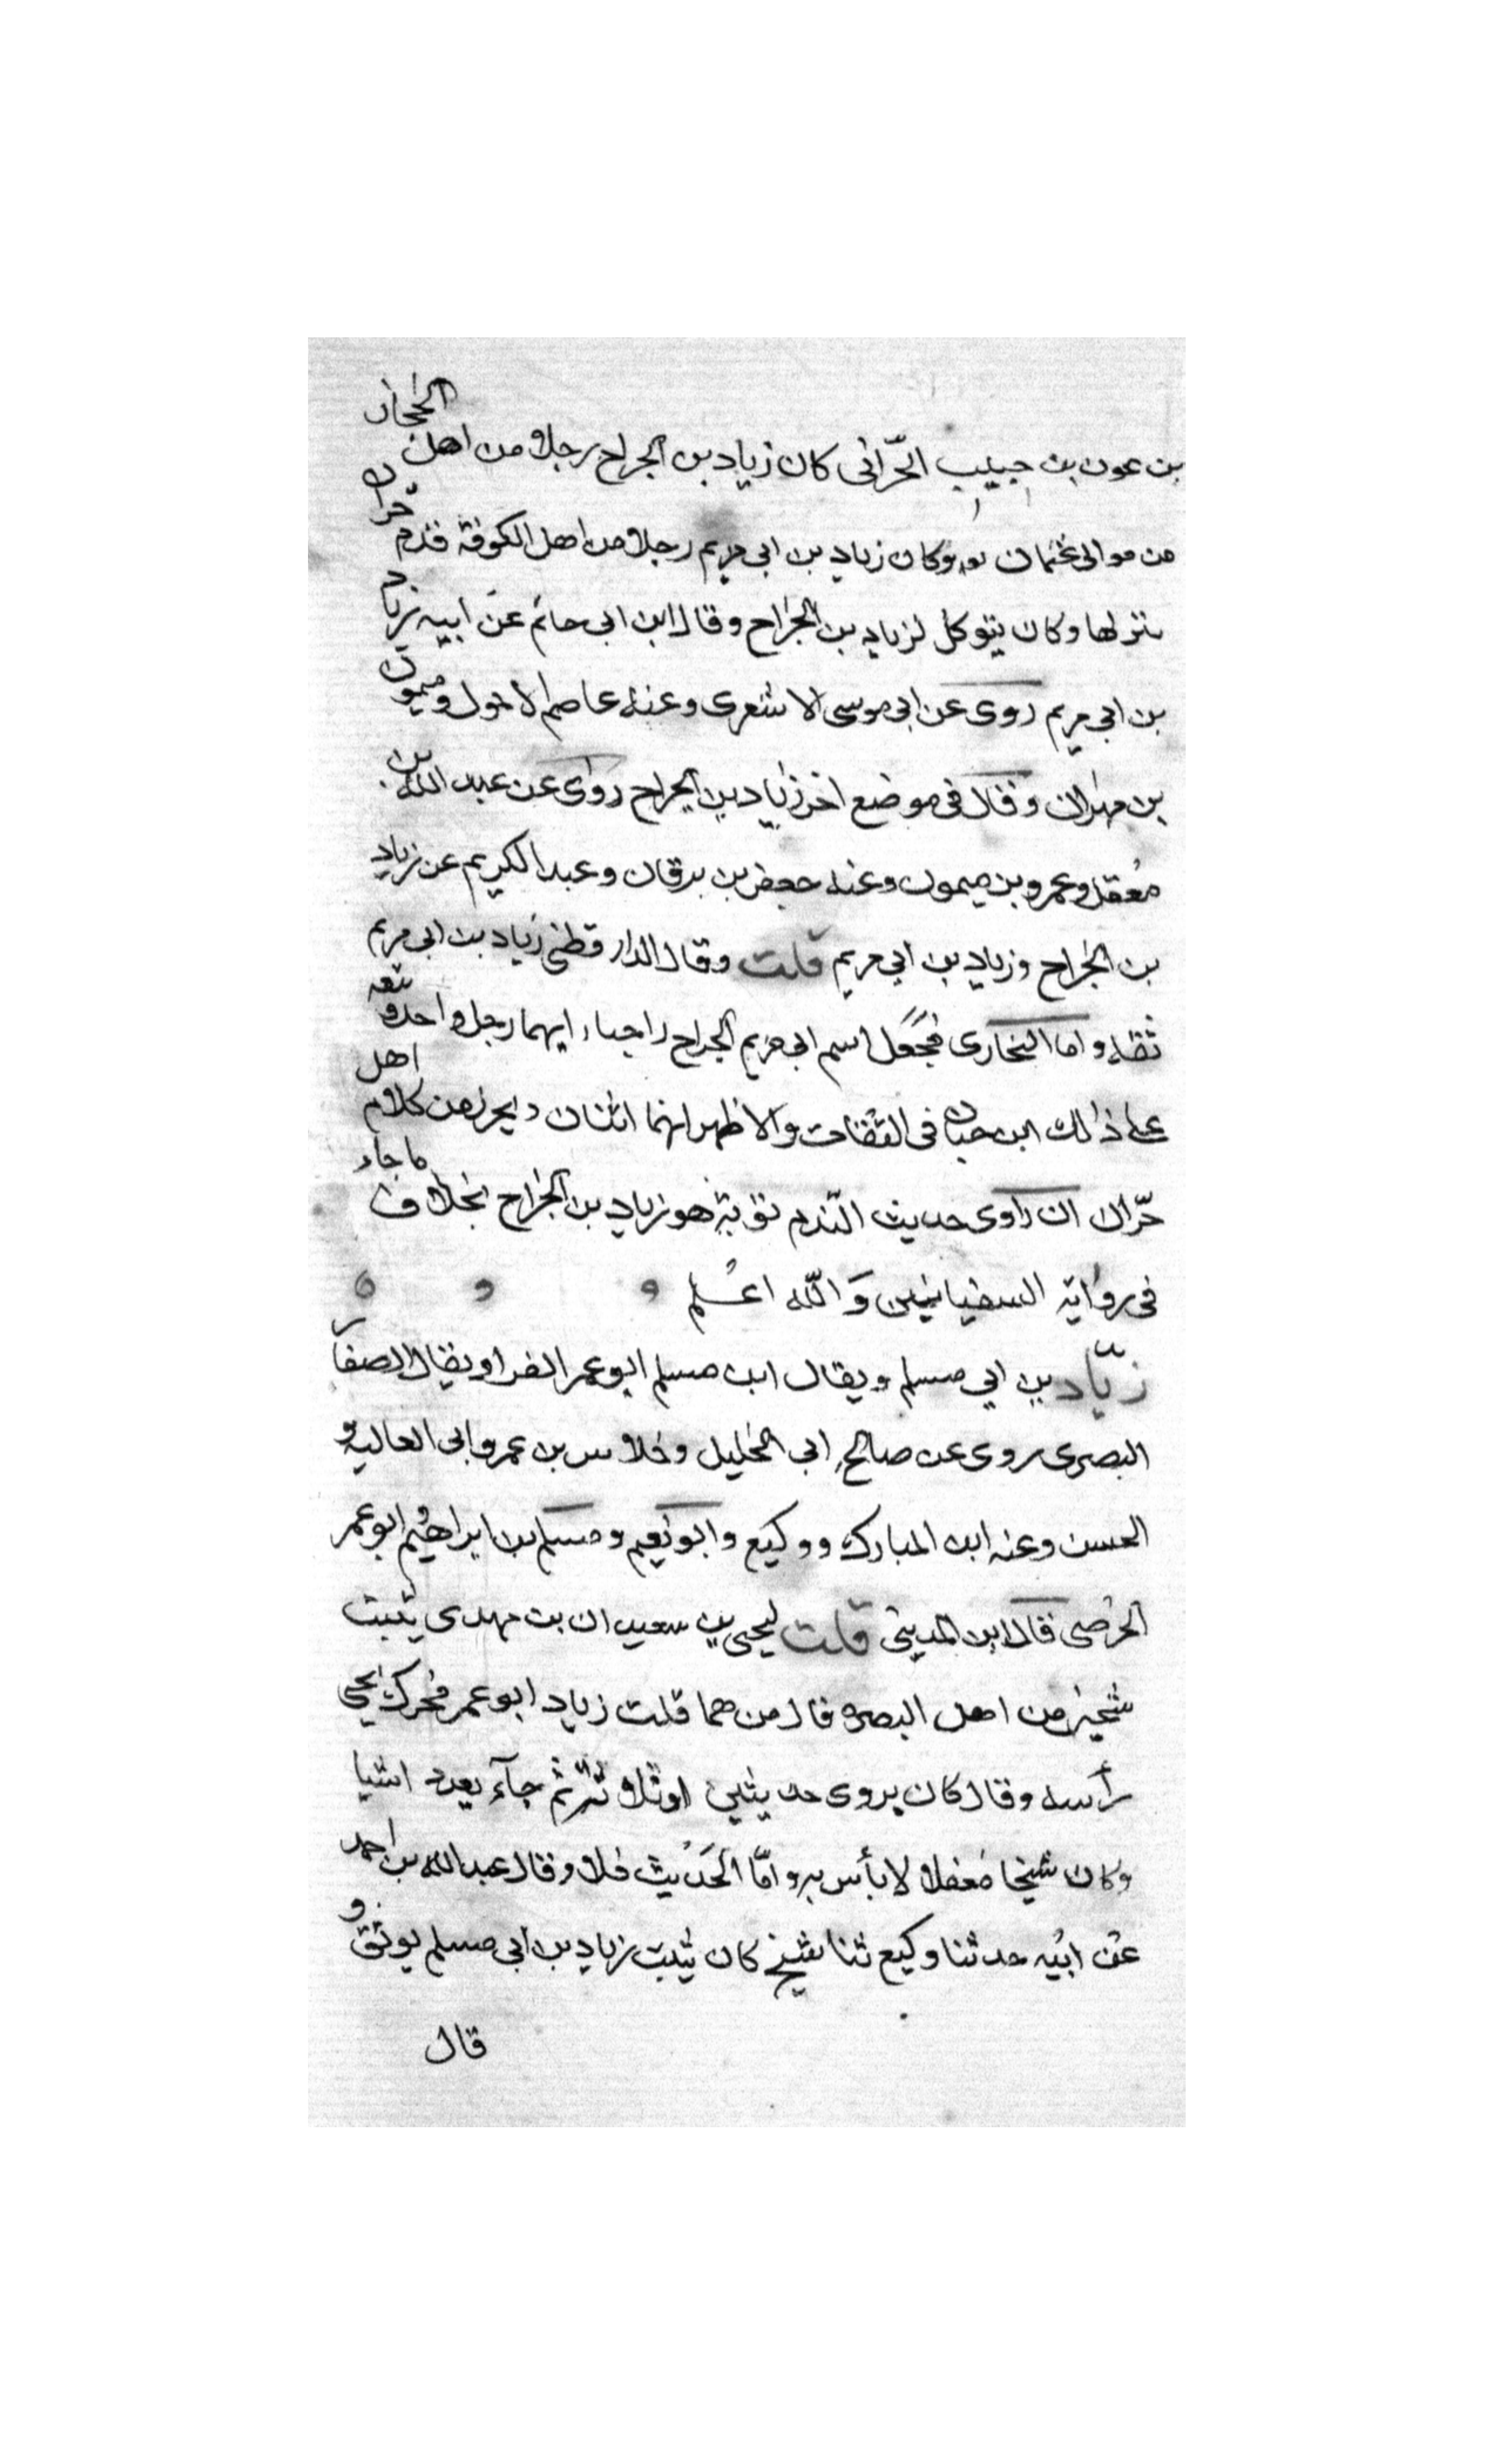 بن عون بن حبيب الحرّانى كان زياد بن الجراح رجلا من اهل الحجاز
من موالى عثمان وكان زياد بن ابى مريم رجلا من اهل الكوفة قدم حران
نزلها وكان يتوكل لزياد بن الجراح وقال ابن ابى حاتم عن ابيه زياد
بن ابى مريم روى عن ابى موسى الاشعرى وعنه عاصم الاحول وميمون
بن مهران وقال فى موضع اخر زياد بن الجراح روى عن عبد الله بن
معقل وعمرو بن ميمون وعنه جعفر بن برقان وعبد الكريم عن زياد
بن الجراح وزياد بن ابى مريم قلت وقال الدارقطنى زياد بن ابى مريم
ثقه واما البخارى فجعل اسم ابى مريم الجراح انهما رجل واحد وتبعه
على ذلك ابن حبان فى الثقات والاظهر انهما اثنان من كلام اهل
حرّان ان راوى حديث النّدم توبة هو زياد بن الجراح بخلاف ما جاء
فى رواية السفيانين وَالله اعلم
زيّاد بن ابي مسلم ويقال ابن مسلم ابو عمر الفرا ويقال الصفار
البصرى روى عن صالح ابى الخليل وخلاس بن عمرو وابى العاليه و
الحسن وعنه ابن المبارك ووكيع وابو نعيم ومسلم بن ابراهيم ابو عمر
الحوضى قال ابن المدينى قلت ليحيى بن سعيد ان بن مهدى يثبت
شيخين من اهل البصره قال من هما قلت زياد ابو عمر فحرك يحيى
رأسه وقال كان يروى حديثين او ثلاثة ثم جآء بعد اشيا
وكان شيخا مغفلا لا بأس به وامّا الحَديث فلا وقال عبد الله بن احمد
عن ابيه حدثنا وكيع ثنا شيخ كان يثبت زياد بن ابى مسلم يوثق و
قال